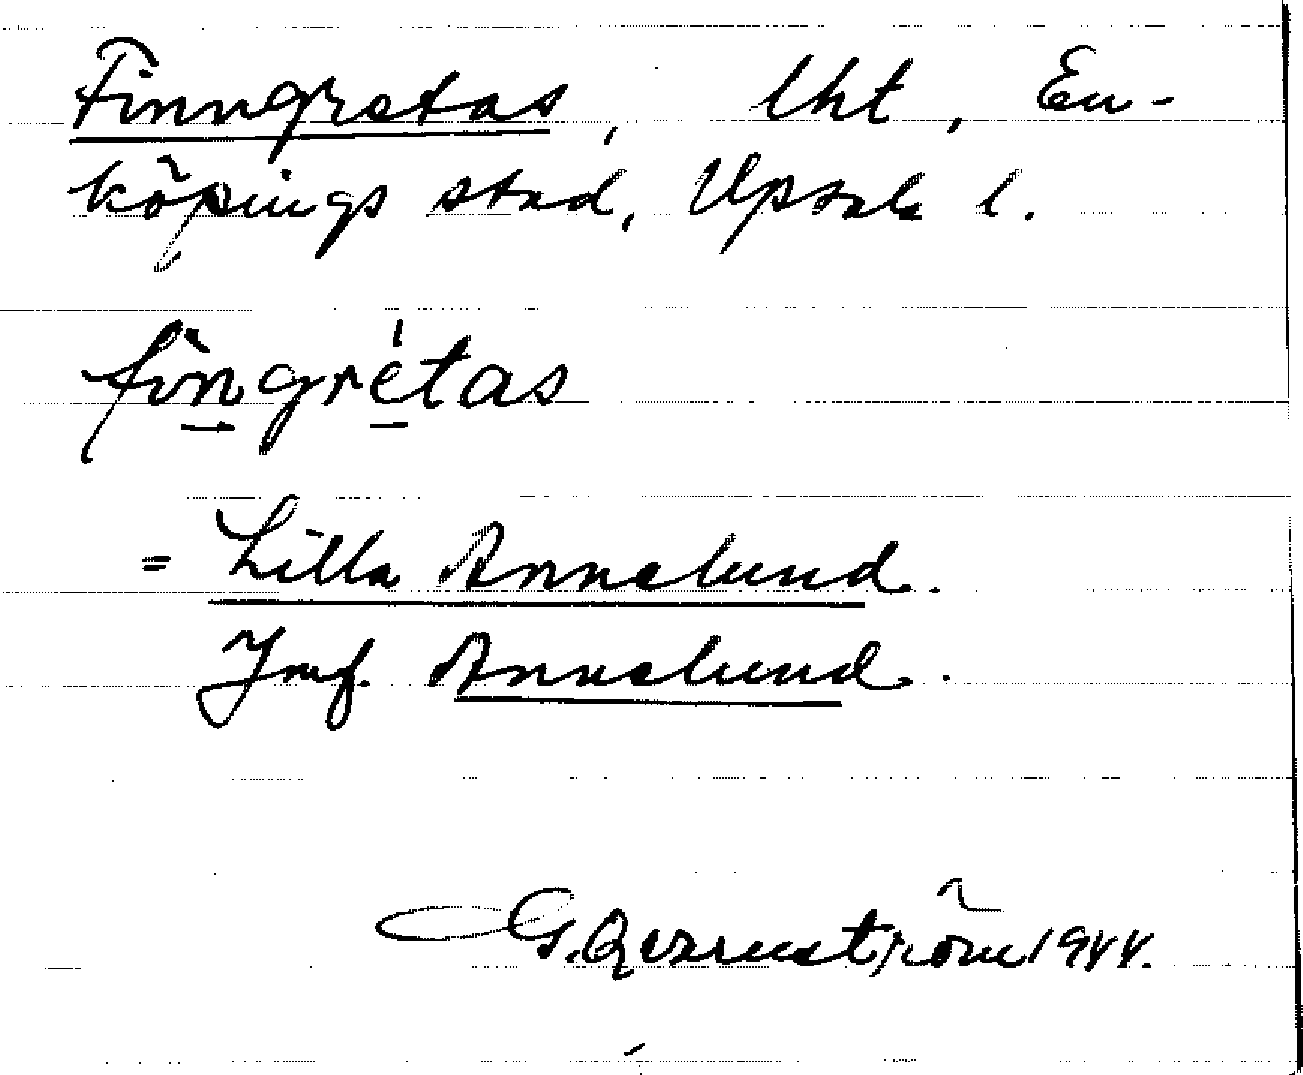 Finngretas, lht, En-
köpings stad, Upsala l.
fìngrétas
= Lilla Annelund.
Jmf. Annelund.
G. Qvarnström 1944.